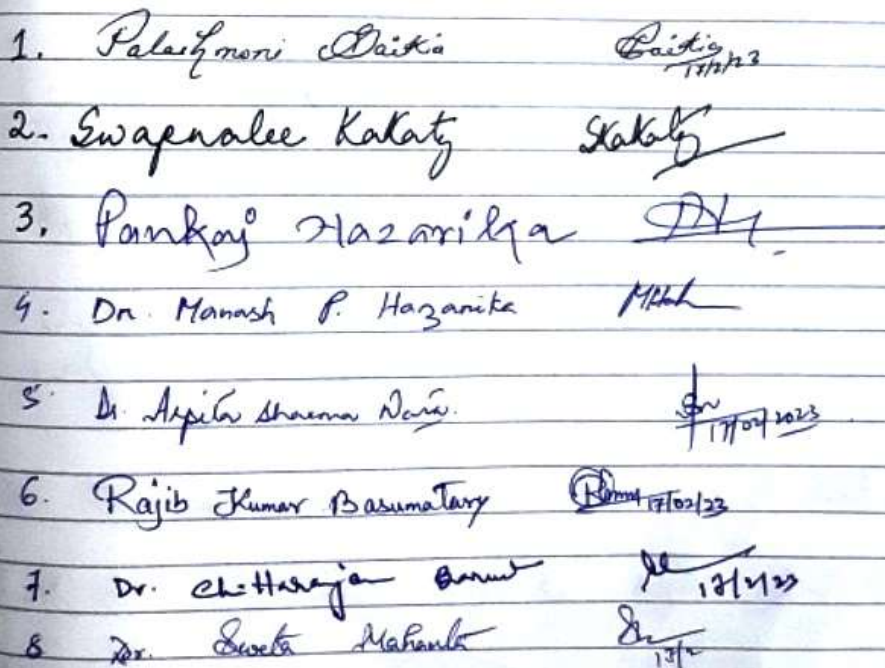 1. Palashmoni Saikia Saikia 17/2/23
2. Swapnalee Kakaty SKakaty
3. Pankaj Hazarika
4. Dr. Manash P. Hazarika
5 Dr. Arpita Sharma 17/02/2023
6. Rajib Kumar Basumatary 17/02/23
7. Dr. Chittaranjan Baruah 17/2/23
8 Dr. Sweta Mahanta 17/2